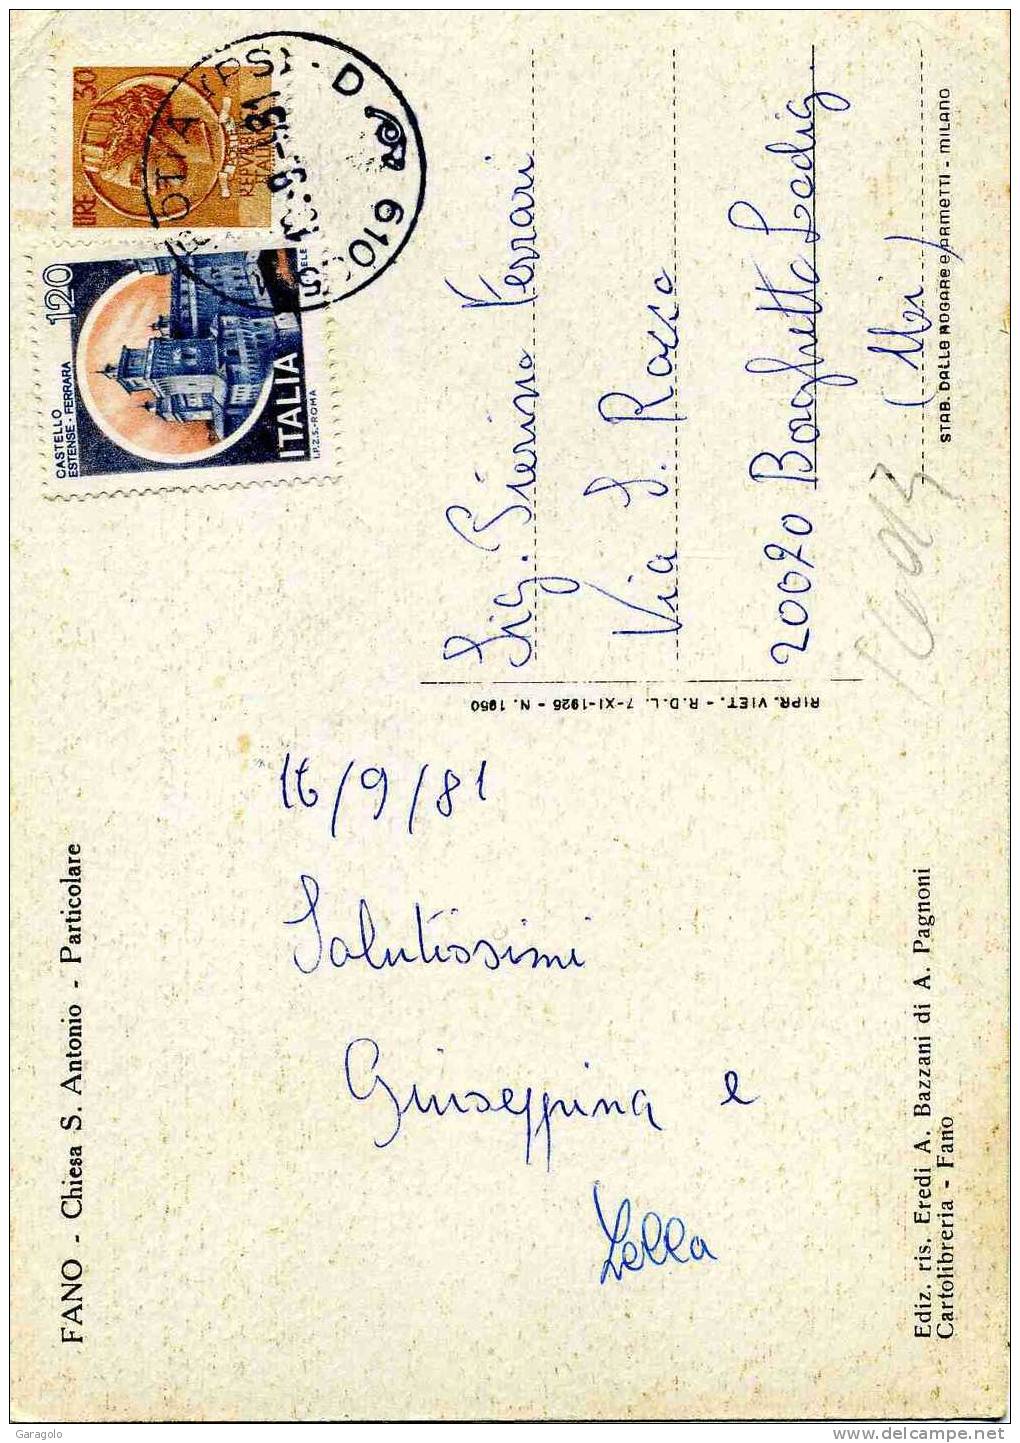 FANO - Chiesa S. Antonio - Particolare
16/9/81
Salutissimi
Giuseppina e
Lella
Ediz. ris. Eredi A. Bazzani di A. Pagnoni
Cartolibreria - Fano
RIPR. VIET. - R.D.L. 7-XI-1925 - N. 1950
LIRE 30
REPVBBLICA
ITALIANA
120
CASTELLO
ESTENSE - FERRARA
ITALIA
I.P.Z.S. - ROMA
D 610
Sig. Pierino Ferrari
Via S. Rocco
20070 Borghetto Lodig.
(Mi)
STAB. DALLE NOGARE e ARMETTI - MILANO
Garagolo
www.delcampe.net